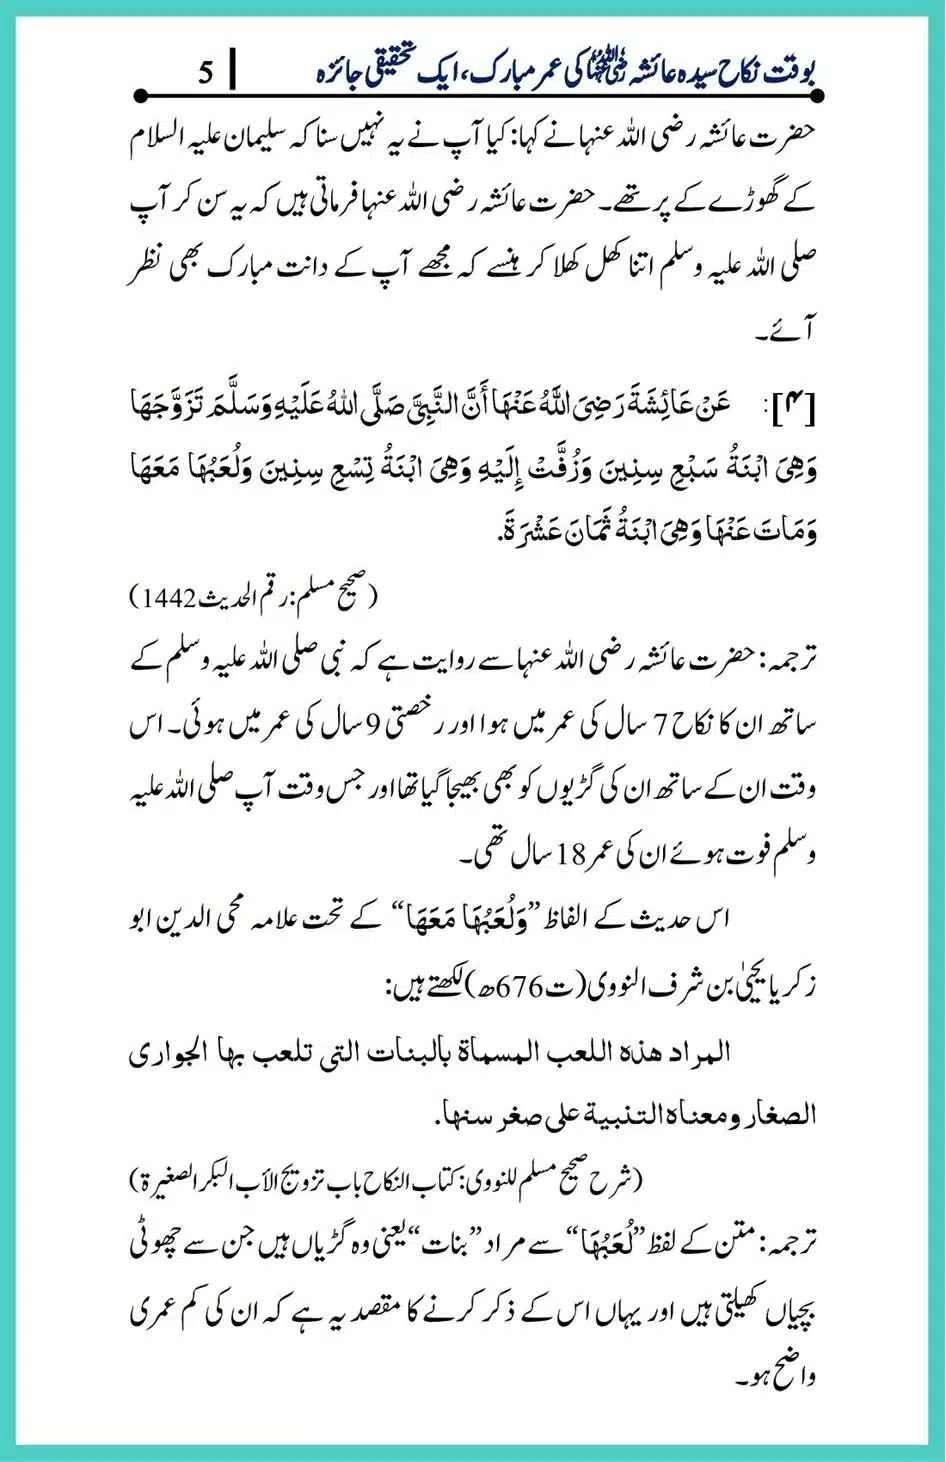 بوقت نکاح سیدہ عائشہ رضی اللہ عنہا کی عمر مبارک، ایک تحقیقی جائزہ | 5
حضرت عائشہ رضی اللہ عنہا نے کہا: کیا آپ نے یہ نہیں سنا کہ سلیمان علیہ السلام
کے گھوڑے کے پر تھے۔ حضرت عائشہ رضی اللہ عنہا فرماتی ہیں کہ یہ سن کر آپ
صلی اللہ علیہ وسلم اتنا کھل کھلا کر ہنسے کہ مجھے آپ کے دانت مبارک بھی نظر
آئے۔
[۴]: عَنْ عَائِشَةَ رَضِیَ اللَّهُ عَنْهَا أَنَّ النَّبِیَّ صَلَّی اللهُ عَلَيْهِ وَسَلَّمَ تَزَوَّجَهَا
وَهِیَ ابْنَةُ سَبْعِ سِنِينَ وَزُفَّتْ إِلَيْهِ وَهِیَ ابْنَةُ تِسْعِ سِنِينَ وَلُعَبُهَا مَعَهَا
وَمَاتَ عَنْهَا وَهِیَ ابْنَةُ ثَمَانَ عَشْرَةَ.
(صحیح مسلم: رقم الحدیث 1442)
ترجمہ: حضرت عائشہ رضی اللہ عنہا سے روایت ہے کہ نبی صلی اللہ علیہ وسلم کے
ساتھ ان کا نکاح 7 سال کی عمر میں ہوا اور رخصتی 9 سال کی عمر میں ہوئی۔ اس
وقت ان کے ساتھ ان کی گڑیوں کو بھی بھیجا گیا تھا اور جس وقت آپ صلی اللہ علیہ
وسلم فوت ہوئے ان کی عمر 18 سال تھی۔
اس حدیث کے الفاظ ”وَلُعَبُهَا مَعَهَا“ کے تحت علامہ محی الدین ابو
زکریا یحییٰ بن شرف النووی (ت 676ھ) لکھتے ہیں:
المراد هذه اللعب المسماة بالبنات التی تلعب بها الجواری
الصغار ومعناه التنبیة علی صغر سنها.
(شرح صحیح مسلم للنووی: کتاب النکاح باب تزویج الأب البکر الصغیرة)
ترجمہ: متن کے لفظ ”لُعَبُهَا“ سے مراد ”بنات“ یعنی وہ گڑیاں ہیں جن سے چھوٹی
بچیاں کھیلتی ہیں اور یہاں اس کے ذکر کرنے کا مقصد یہ ہے کہ ان کی کم عمری
واضح ہو۔